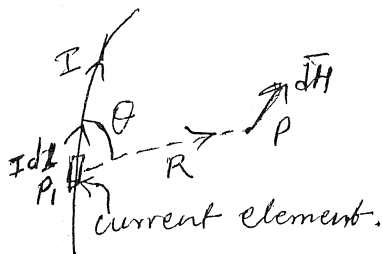 I
dH̅
θ
P
Idl
R
P₁
current element.